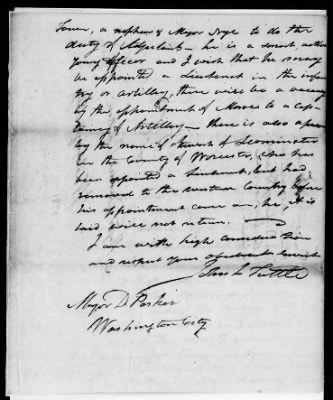 Tower, a nephew of Major Nye to do the
duty of Adjutant – he is a smart active
young officer and I wish that he may
be appointed a Lieutenant in the infan
try or artillery, there will be a vacancy
by the appointment of to a cap-
taincy of Artillery – there is also a person
by the name of of Leominster
in the County of Worcester, who has
been appointed a Lieutenant, but had
removed to the western Country before
his appointment came on, he it is
said will not return.
I am with high consideration
and respect your obedient servant
L Tuttle
Major D Parker
Washington City